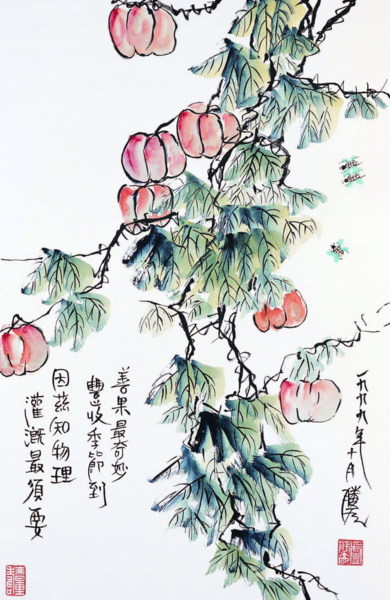 善果最奇妙
豐收季節到
因兹知物理
灌溉最須要
一九九九年十月